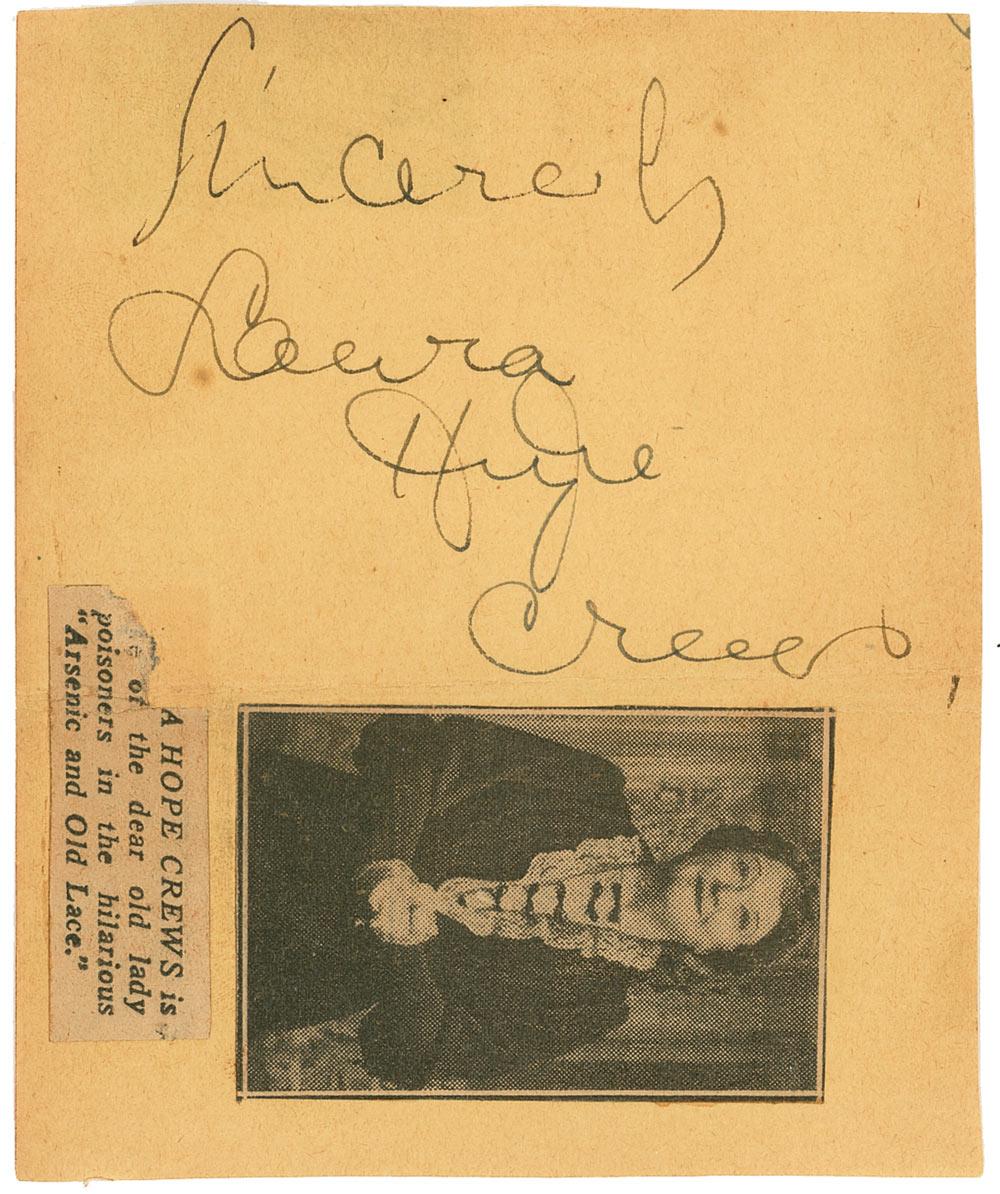 Sincerely
Laura
Hope
Crews
A HOPE CREWS is
of the dear old lady
poisoners in the hilarious
"Arsenic and Old Lace."